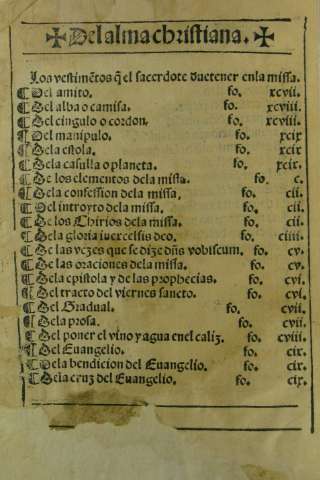 ✠ Del alma christiana. ✠
Los vestimẽtos q̃ el sacerdote due tener enla missa.
¶ Del amito. fo. xcvii.
¶ Del alba o camisa. fo. xcviii.
¶ Del cingulo o cordon. fo. xcviii.
¶ Del manipulo. fo. xcix
¶ Dela estola. fo. xcix
¶ Dela casulla o planeta. fo. xcix.
¶ De los elementos dela missa. fo. c.
¶ Dela confession dela missa. fo. cii.
¶ Del introyto dela missa. fo. cii.
¶ De los Chirios dela missa. fo. cii.
¶ Dela gloria in excelsis deo. fo. ciiii.
¶ De las vezes que se dize dñs vobiscum. fo. cv.
¶ De las oraciones dela missa. fo. cv.
¶ Dela epistola y de las prophecias. fo. cvi.
¶ Del tracto del viernes sancto. fo. cvi.
¶ Del Gradual. fo. cvii.
¶ Dela prosa. fo. cvii.
¶ Del poner el vino y agua enel caliz. fo. cviii.
¶ Del Euangelio. fo. cix.
¶ Dela bendicion del Euangelio. fo. cix.
¶ Dela cruz del Euangelio. fo. cix.